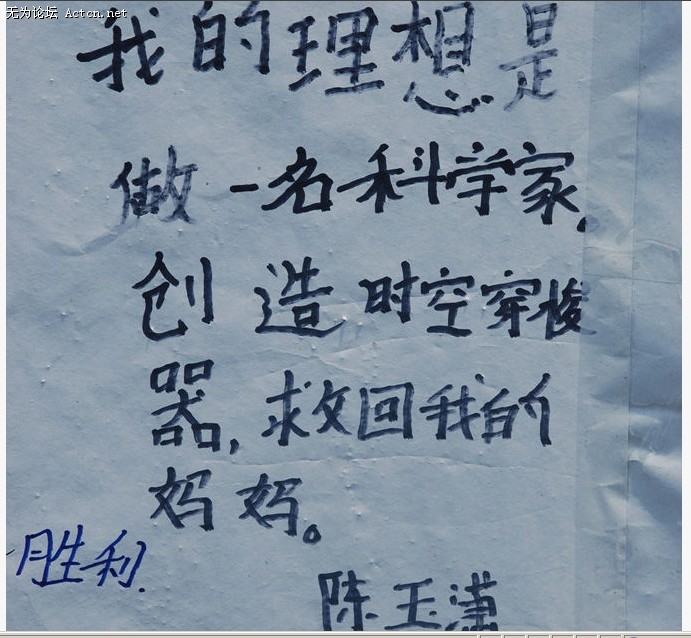 无为论坛 Actcn.net
我的理想是
做一名科学家,
创造时空穿梭
器,救回我的
妈妈。
胜利.
陈玉潇